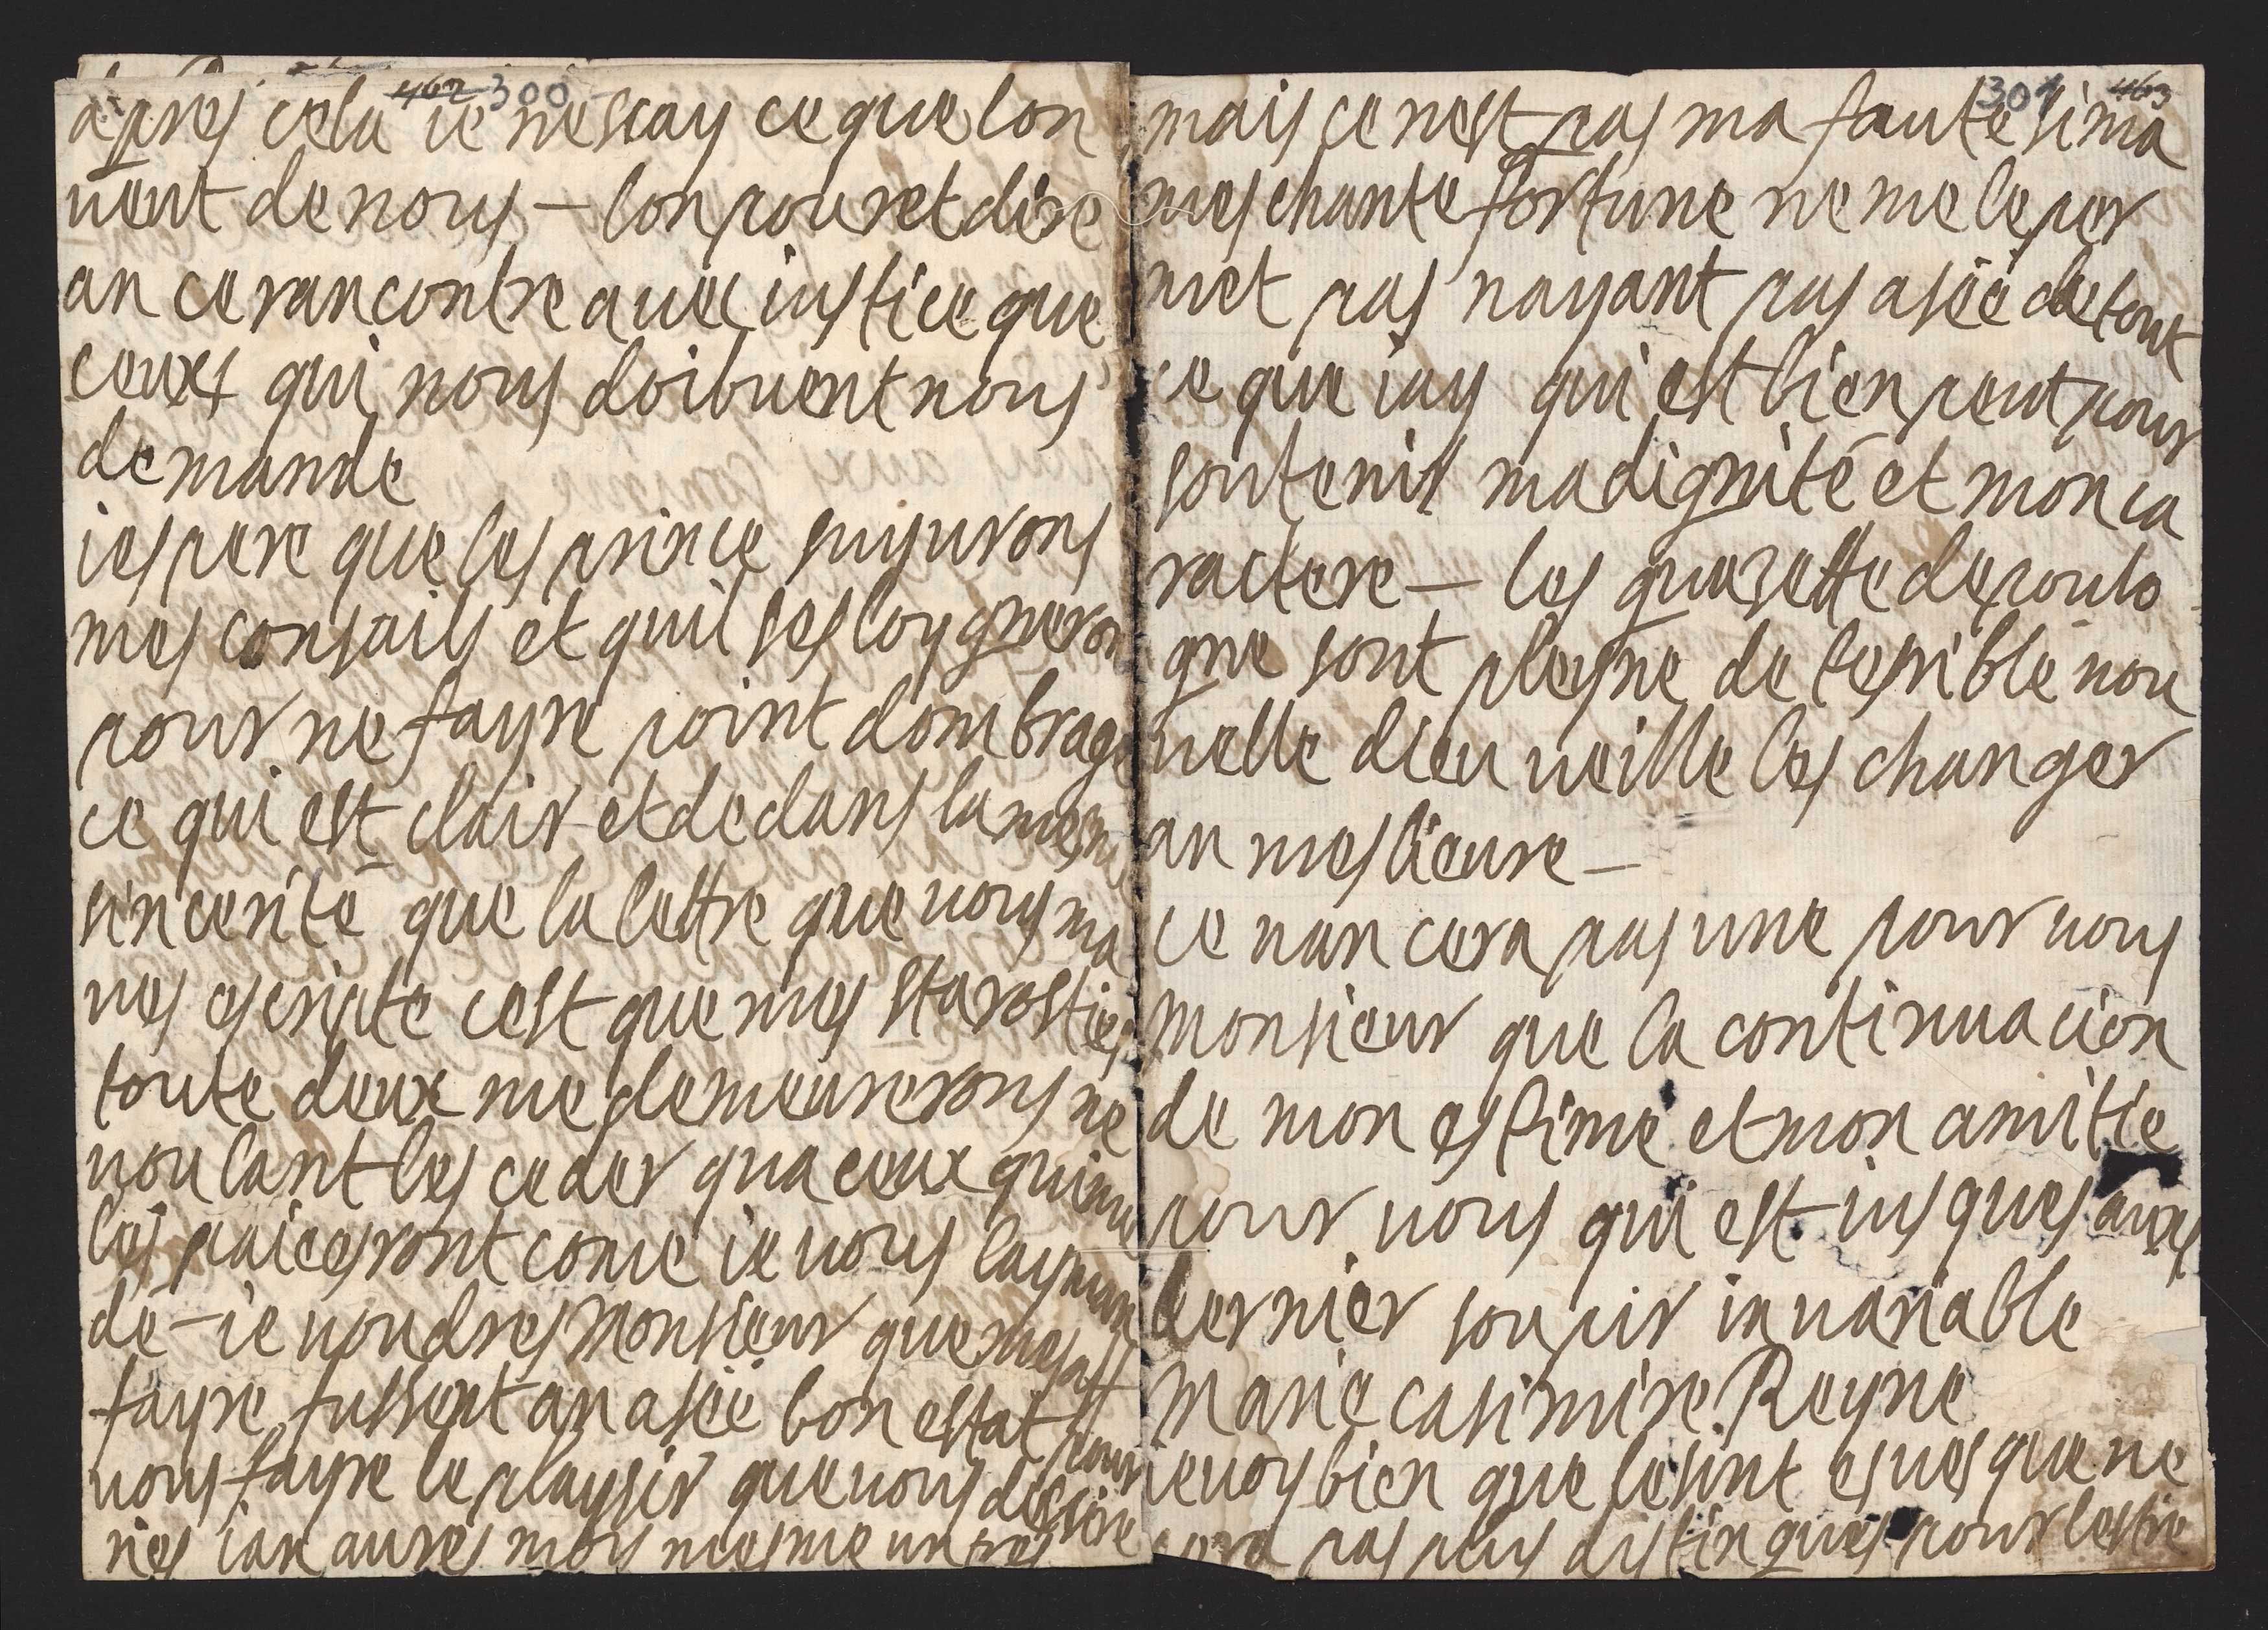 462 300
apres cela ie ne scay ce que lon
veut de nous – lon pouret dire
an ce rancontre avec iustice que
ceuxs qui nous doibvent nous
demande
iespere que les prince suyvrons
mes consails et quil sesloygneron
pour ne fayre point dombrage
ce qui est clair et de dans la mesme
sincerité que la lettre que vous ma
ves escripte cest que mes starosties
toute deux me demeurerons ne
voulant les ceder qua ceux qui me
les paicesront come ie vous lay man
dé – ie voudres Monsieur que mes aff
fayre fussent an asée bon estat pour
vous fayre le playsir que vous dessire
ries ian aures moy mesme un tres
301 463
mais ce nest pas ma faute si ma
meschante fortune ne me le per
met pas nayant pas asée de tout
ce que iay qui est bien peut pour
soutenir ma dignité et mon ca
ractere – les guazette de poulo
gne sont pleyne de terrible nou
velle dieu veille les changer
an meslieure –
ce nan cera pas une pour vous
Monsieur que la continuacion
de mon estime et mon amitie
pour vous qui est iusques auxs
dernier soupir invariable
Marie Casimire Reyne
ie voy bien que le sint esvesque ne
cera pas plus distingues pour lestre